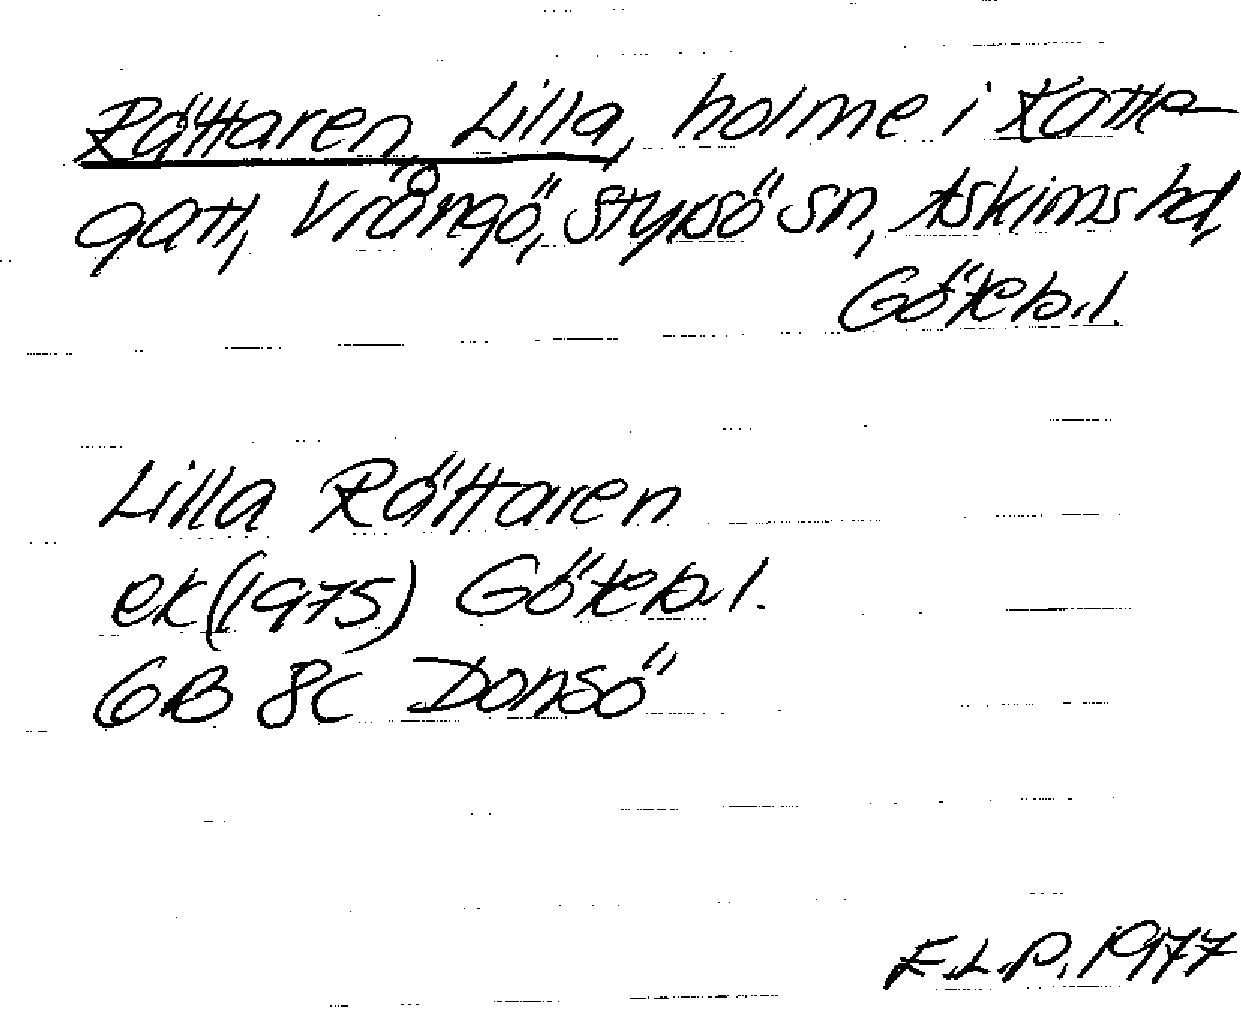 Rättaren, Lilla, holme i Katte-
gatt, Vrångö, Styrsö sn, Askims hd,
Göteb. l.
Lilla Rättaren
ek (1975) Göteb. l.
6B 8c Donsö
F.L.P. 1977